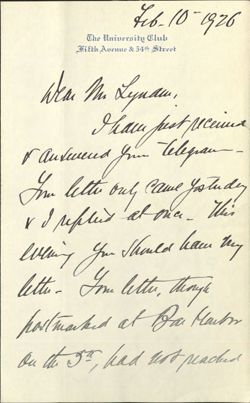 Feb. 10 - 1926
The University Club
Fifth Avenue & 54th Street
Dear Mr Lynam,
I have just received
& answered your telegram -
Your letter only came yesterday
& I replied at once. This
evening you should have my
letter - Your letter, though
postmarked at Bar Harbor
on the 5th, had not reached